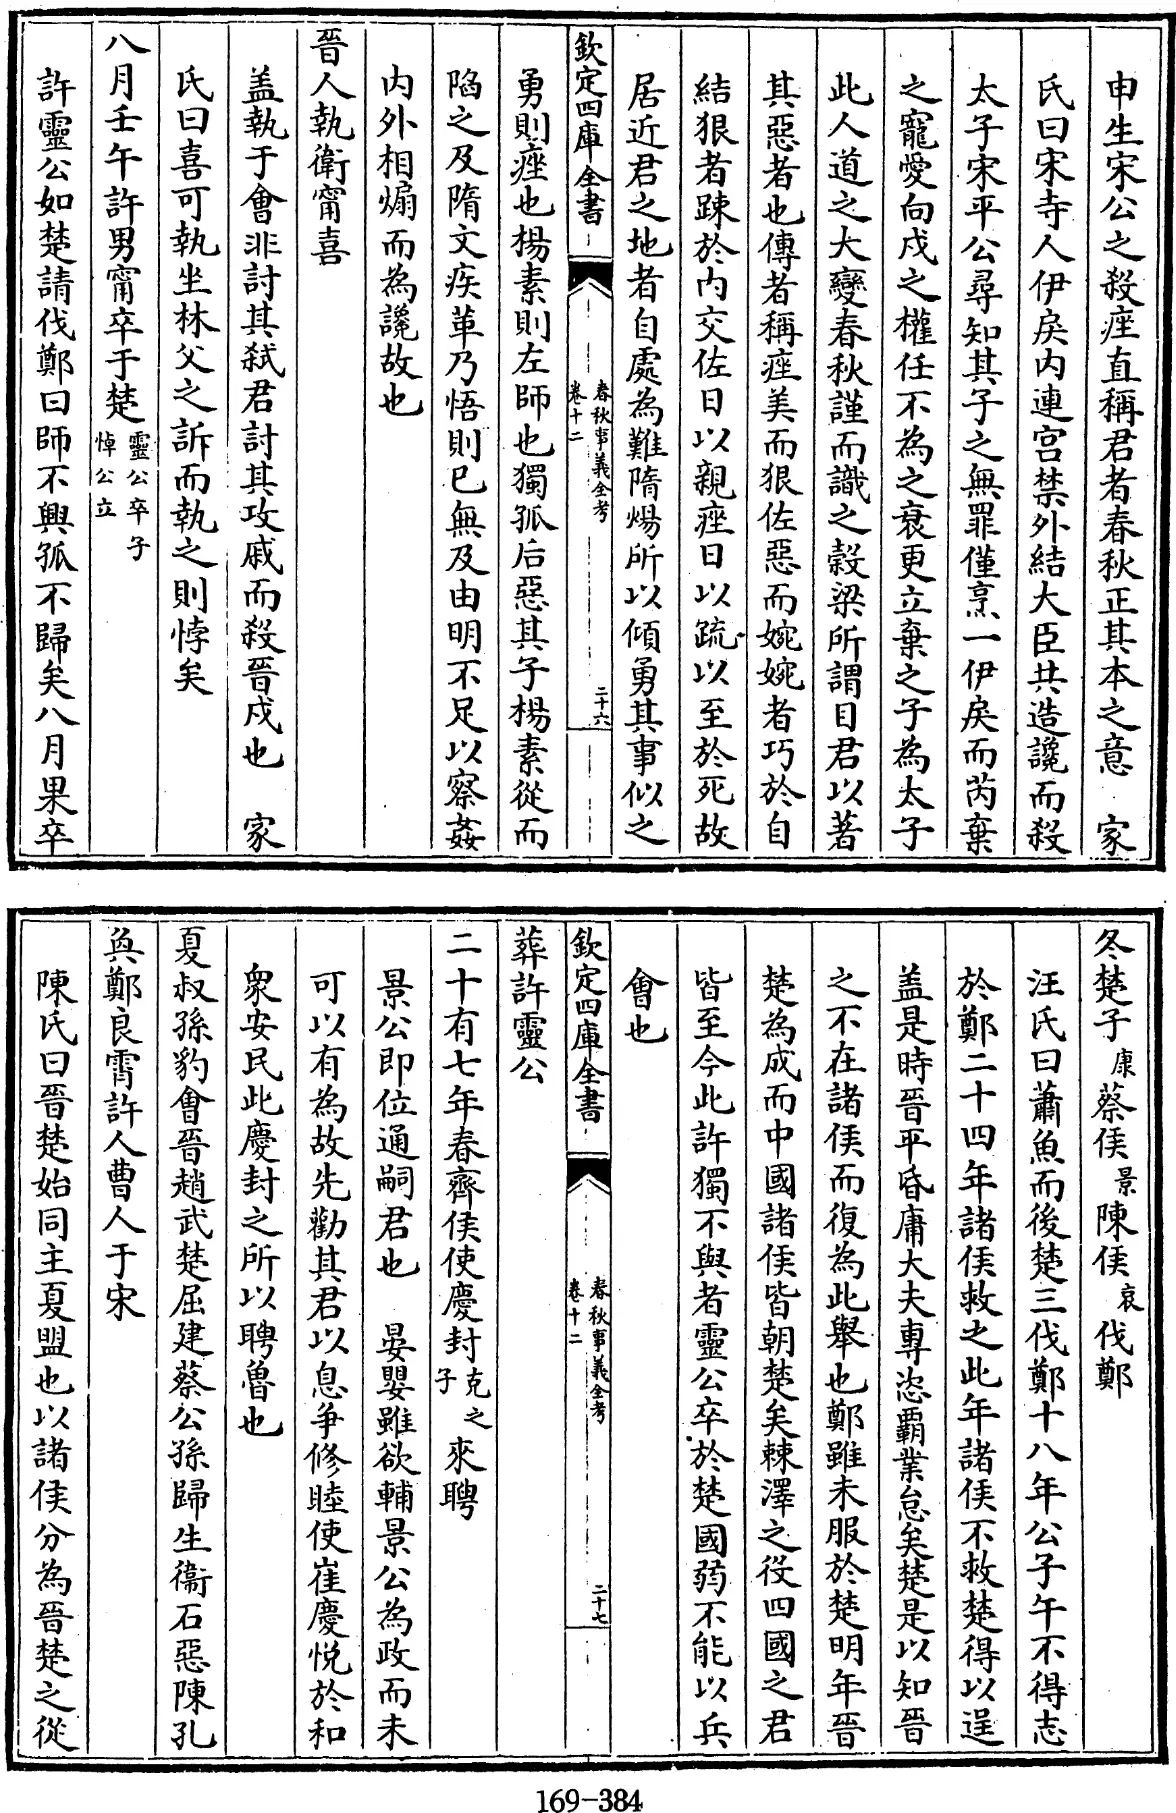 申生宋公之殺痤直稱君者春秋正其本之意　家
氏曰宋寺人伊戾内連宫禁外結大臣共造讒而殺
太子宋平公尋知其子之無罪僅烹一伊戾而芮棄
之寵愛向戍之權任不為之衰更立棄之子為太子
此人道之大變春秋謹而識之穀梁所謂目君以著
其惡者也傳者稱痤美而狠佐惡而婉婉者巧於自
結狠者踈於内交佐日以親痤日以疏以至於死故
居近君之地者自處為難隋煬所以傾勇其事似之
欽定四庫全書
春秋事義全考
卷十二
二十六
勇則痤也楊素則左師也獨孤后惡其子楊素從而
陷之及隋文疾革乃悟則已無及由明不足以察姦
内外相煽而為讒故也
晉人執衛甯喜
盖執于會非討其弑君討其攻戚而殺晉戍也　家
氏曰喜可執坐林父之訴而執之則悖矣
八月壬午許男甯卒于楚靈公卒子悼公立
許靈公如楚請伐鄭曰師不興孤不歸矣八月果卒
冬楚子康蔡侯景陳侯哀伐鄭
汪氏曰蕭魚而後楚三伐鄭十八年公子午不得志
於鄭二十四年諸侯救之此年諸侯不救楚得以逞
盖是時晉平昏庸大夫專恣覇業怠矣楚是以知晉
之不在諸侯而復為此舉也鄭雖未服於楚明年晉
楚為成而中國諸侯皆朝楚矣棘澤之役四國之君
皆至今此許獨不與者靈公卒於楚國弱不能以兵
會也
欽定四庫全書
春秋事義全考
卷十二
二十七
葬許靈公
二十有七年春齊侯使慶封克之子來聘
景公即位通嗣君也　晏嬰雖欲輔景公為政而未
可以有為故先勸其君以息争修睦使崔慶悅於和
衆安民此慶封之所以聘魯也
夏叔孫豹會晉趙武楚屈建蔡公孫歸生衞石惡陳孔
奐鄭良霄許人曹人于宋
陳氏曰晉楚始同主夏盟也以諸侯分為晉楚之從
169-384